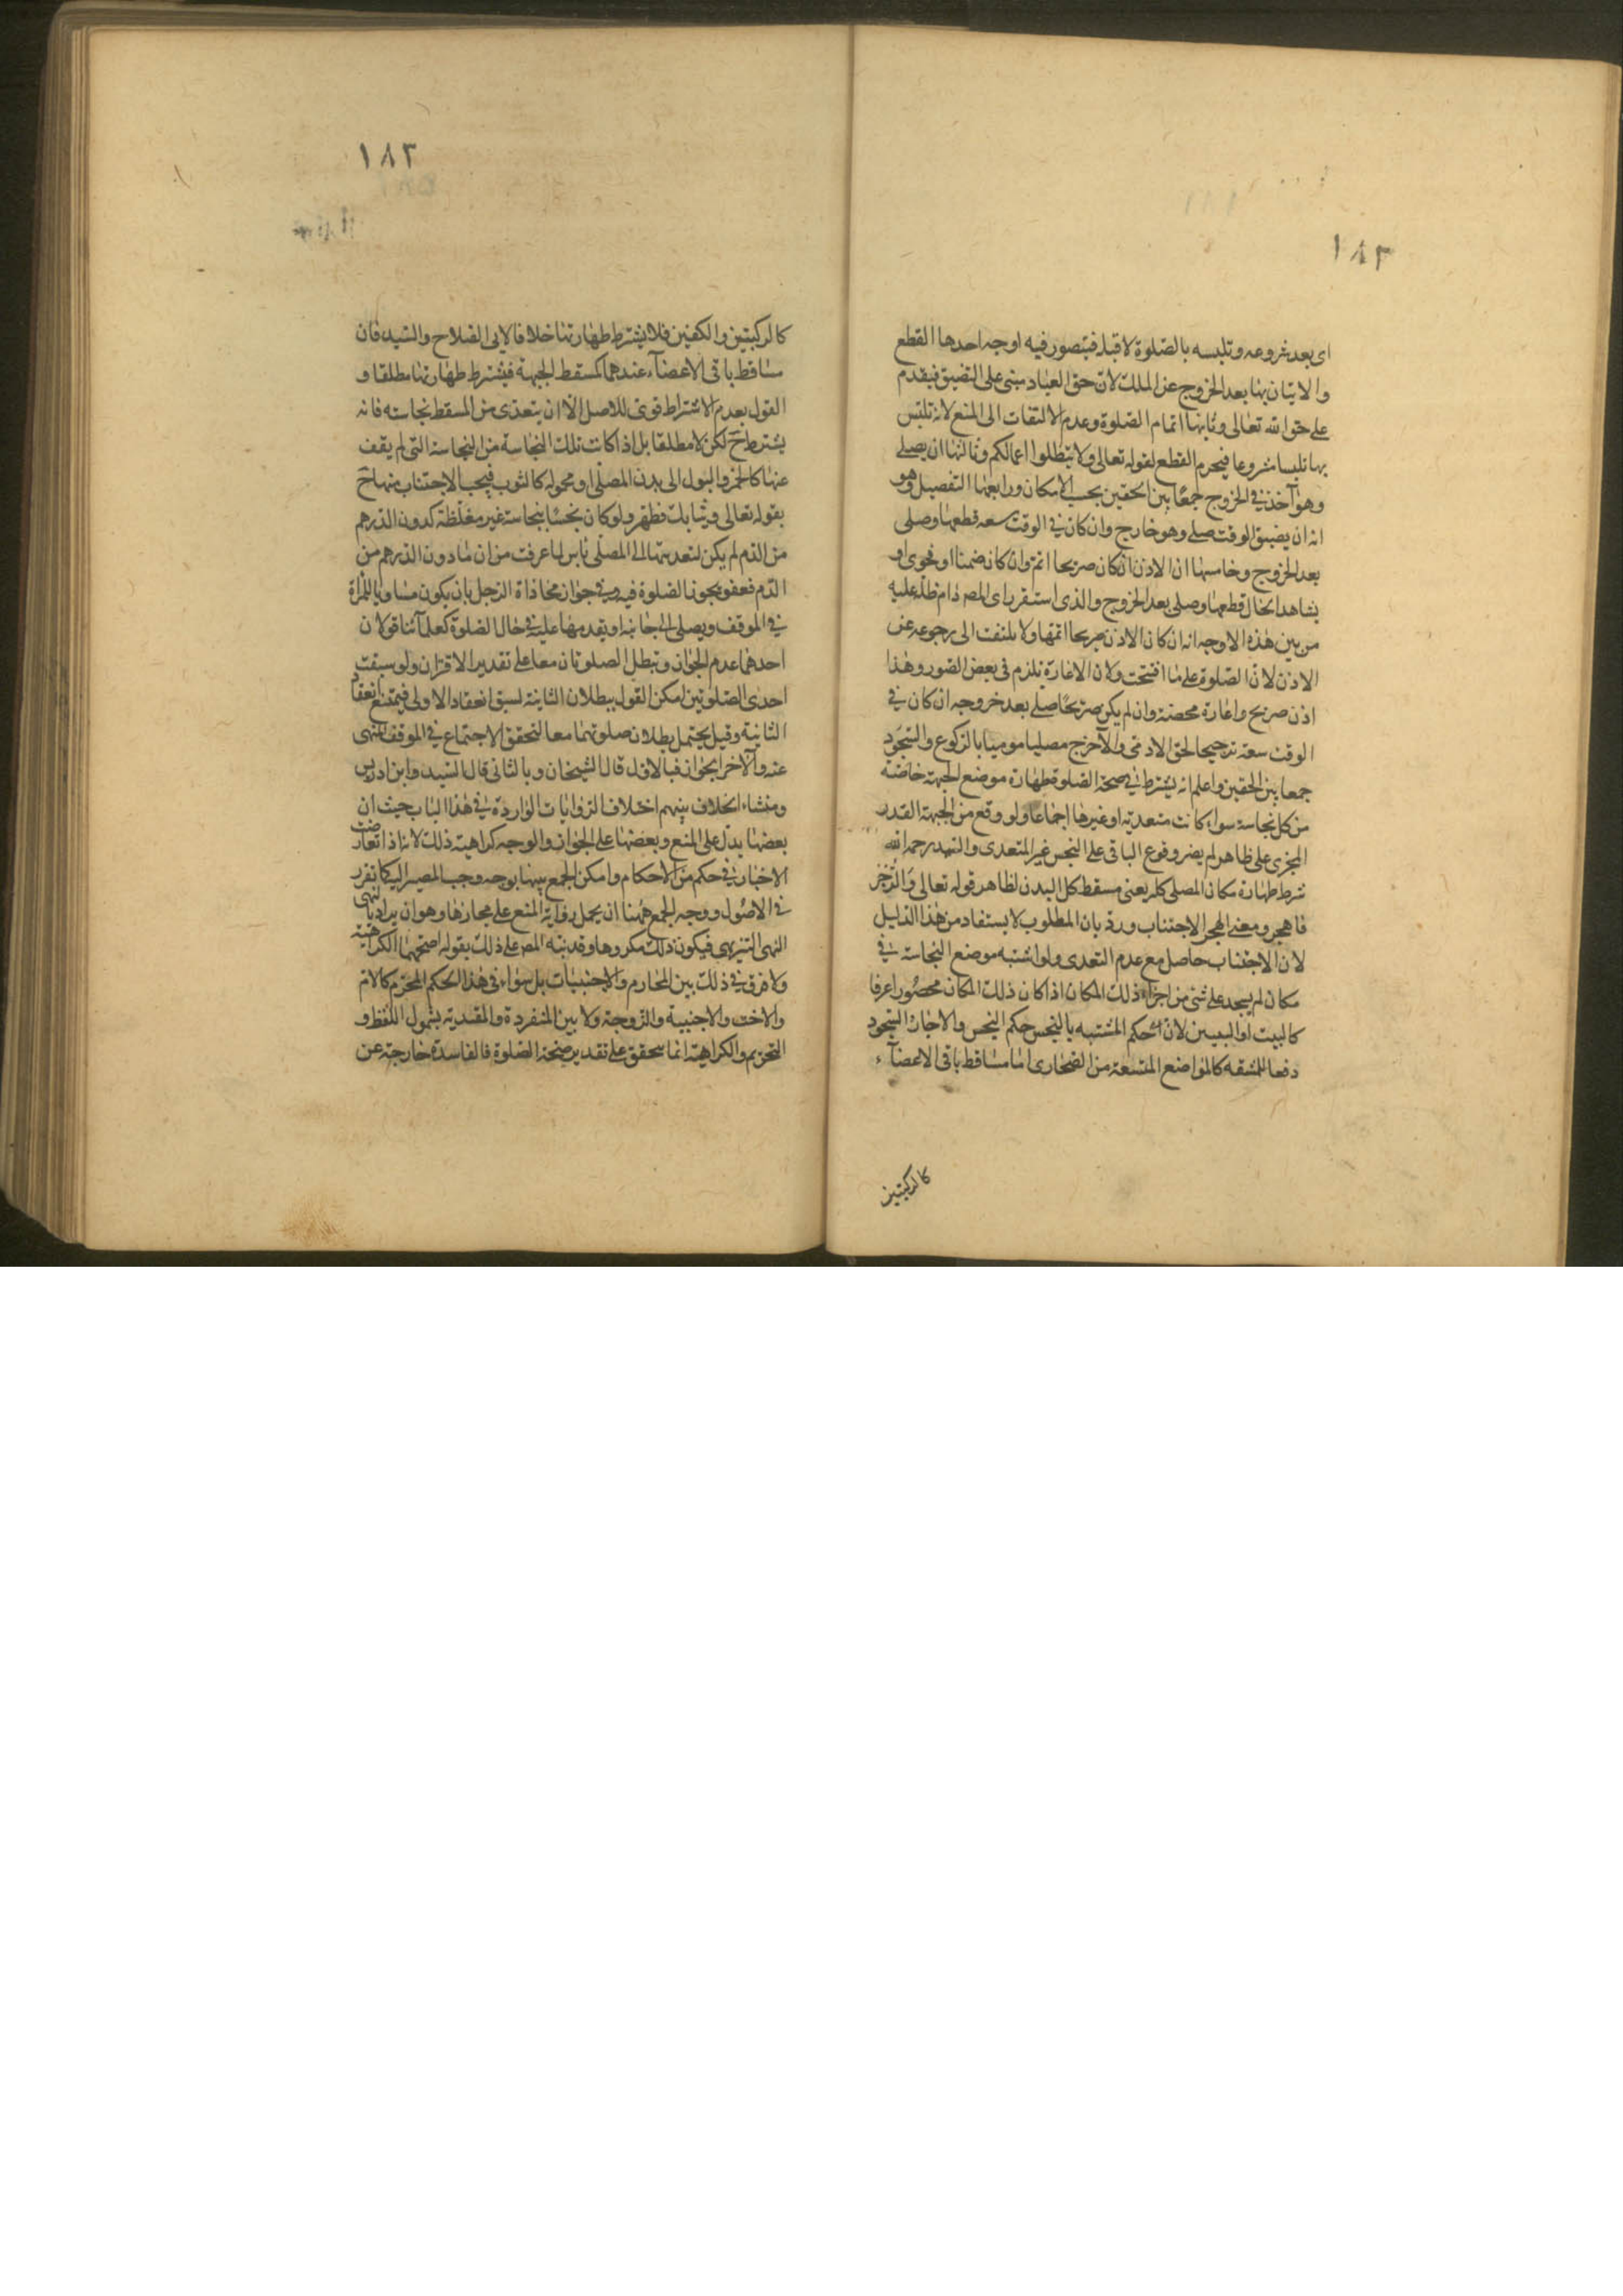 ١٨٢
اى بعد شروعه وتلبسه بالصلوة لا قبله فيتصور فيه اوجه احدها القطع
والاتيان بها بعد الخروج عن الملك لان حق العباد مبنى على التضيق فيقدم
على حق الله تعالى وثانيها اتمام الصلوة وعدم الالتفات الى المنع لانه تلبس
بها تلبسا مشروعا فيحرم القطع لقوله تعالى ولا تبطلوا اعمالكم وثالثها ان يصلى
وهو آخذ فى الخروج جمعا بين الحقين بحسب الامكان ورابعها التفصيل وهو
انه ان يضيق الوقت صلى وهو خارج وان كان فى الوقت سعه قطعها وصلى
بعد الخروج وخامسها ان الاذن ان كان صريحا اتم وان كان ضمنا او فحوى او
بشاهد الحال قطعها وصلى بعد الخروج والذى استقر راى المصـ دام ظله عليه
من بين هذه الاوجه انه ان كان الاذن صريحا اتمها ولا يلتفت الى رجوعه عن
الاذن لان الصلوة على ما افتتحت ولان الاعارة يلزم فى بعض الصور وهذا
اذن صريح واعارة محضة وان لم يكن صريحا صلى بعد خروجه ان كان فى
الوقت سعة ترجيحا لحق الادمى والا خرج مصليا موميا بالركوع والسجود
جمعا بين الحقين واعلم انه يشترط فى صحة الصلوة طهارة موضع الجبهة خاصة
من كل نجاسة سواء كانت متعدية او غيرها اجماعا ولو وقع من الجبهة القدر
المجزى على ظاهر لم يضر وقوع الباقى على النجس غير المتعدى والسيد رحمه الله
شرط طهارة مكان المصلى كله يعنى مسقط كل البدن لظاهر قوله تعالى والرجز
فاهجر ومعنى الهجر الاجتناب ورد بان المطلوب لا يستفاد من هذا الدليل
لان الاجتناب حاصل مع عدم التعدى ولو اشتبه موضع النجاسة فى
مكان لم يسجد على شئ من اجزاء ذلك المكان اذا كان ذلك المكان محصورا عرفا
كالبيت او البيتين لان حكم المشتبه بالنجس حكم النجس والا جاز السجود
دفعا للمشقه كالمواضع المتسعة من الصحارى اما مساقط باقى الاعضآء
كالركبتين
١٨٣
كالركبتين والكفين فلا يشترط طهارتها خلافا لابى الصلاح والسيد فان
مساقط باقى الاعضآء عندهما كمسقط الجبهة فيشترط طهارتها مطلقا و
القول بعدم الاشتراط قوى للاصل الا ان يتعدى من المسقط نجاسته فانه
يشترط ح لكن لا مطلقا بل اذا كانت تلك النجاسة من النجاسة التى لم يعف
عنها كالخمر والبول الى بدن المصلى او محموله كالثوب فيجب الاجتناب منها ح
بقوله تعالى وثيابك فطهر ولو كان نجسا بنجاسة غير مغلظة كدون الدرهم
من الدم لم يكن لتعديتها الى المصلى باس لما عرفت من ان ما دون الدرهم من
الدم فعفو يجوز الصلوة فيه وفى جواز محاذاة الرجل بان يكون مساويا للمرأة
فى الموقف ويصلى الى جانبه او يقدمها عليه فى حال الصلوة كعلمآئنا قولان
احدهما عدم الجواز وتبطل الصلوتان معا على تقدير الاقتران ولو سبقت
احدى الصلوتين امكن القول ببطلان الثانية لسبق انعقاد الاولى فيمتنع انعقاد
الثانية وقيل يحتمل بطلان صلوتهما معا لتحقق الاجتماع فى الموقف المنهى
عنه والآخر الجواز فبالاول قال الشيخان وبالثانى قال السيد وابن ادريس
ومنشاء الخلاف بينهم اختلاف الروايات الواردة فى هذا الباب حيث ان
بعضها يدل على المنع وبعضها على الجواز والوجه كراهية ذلك لانه اذا تعارضت
الاخبار فى حكم من الاحكام وامكن الجمع بينها بوجه وجب المصير اليه كما تقرر
فى الاصول ووجه الجمع ههنا ان يحمل رواية المنع على مجازها وهو ان يراد بالنهى
النهى التنزيهى فيكون ذلك مكروها وقد نبه المصـ على ذلك بقوله اصحهما الكراهية
ولا فرق فى ذلك بين المحارم والاجنبيات بل سواء فى هذا الحكم المحرم كالام
والاخت والاجنبية والزوجة ولا بين المنفردة والمقتدية بشمول اللفظ و
التحريم والكراهية انما يتحقق على تقدير صحة الصلوة فالفاسدة خارجة عن